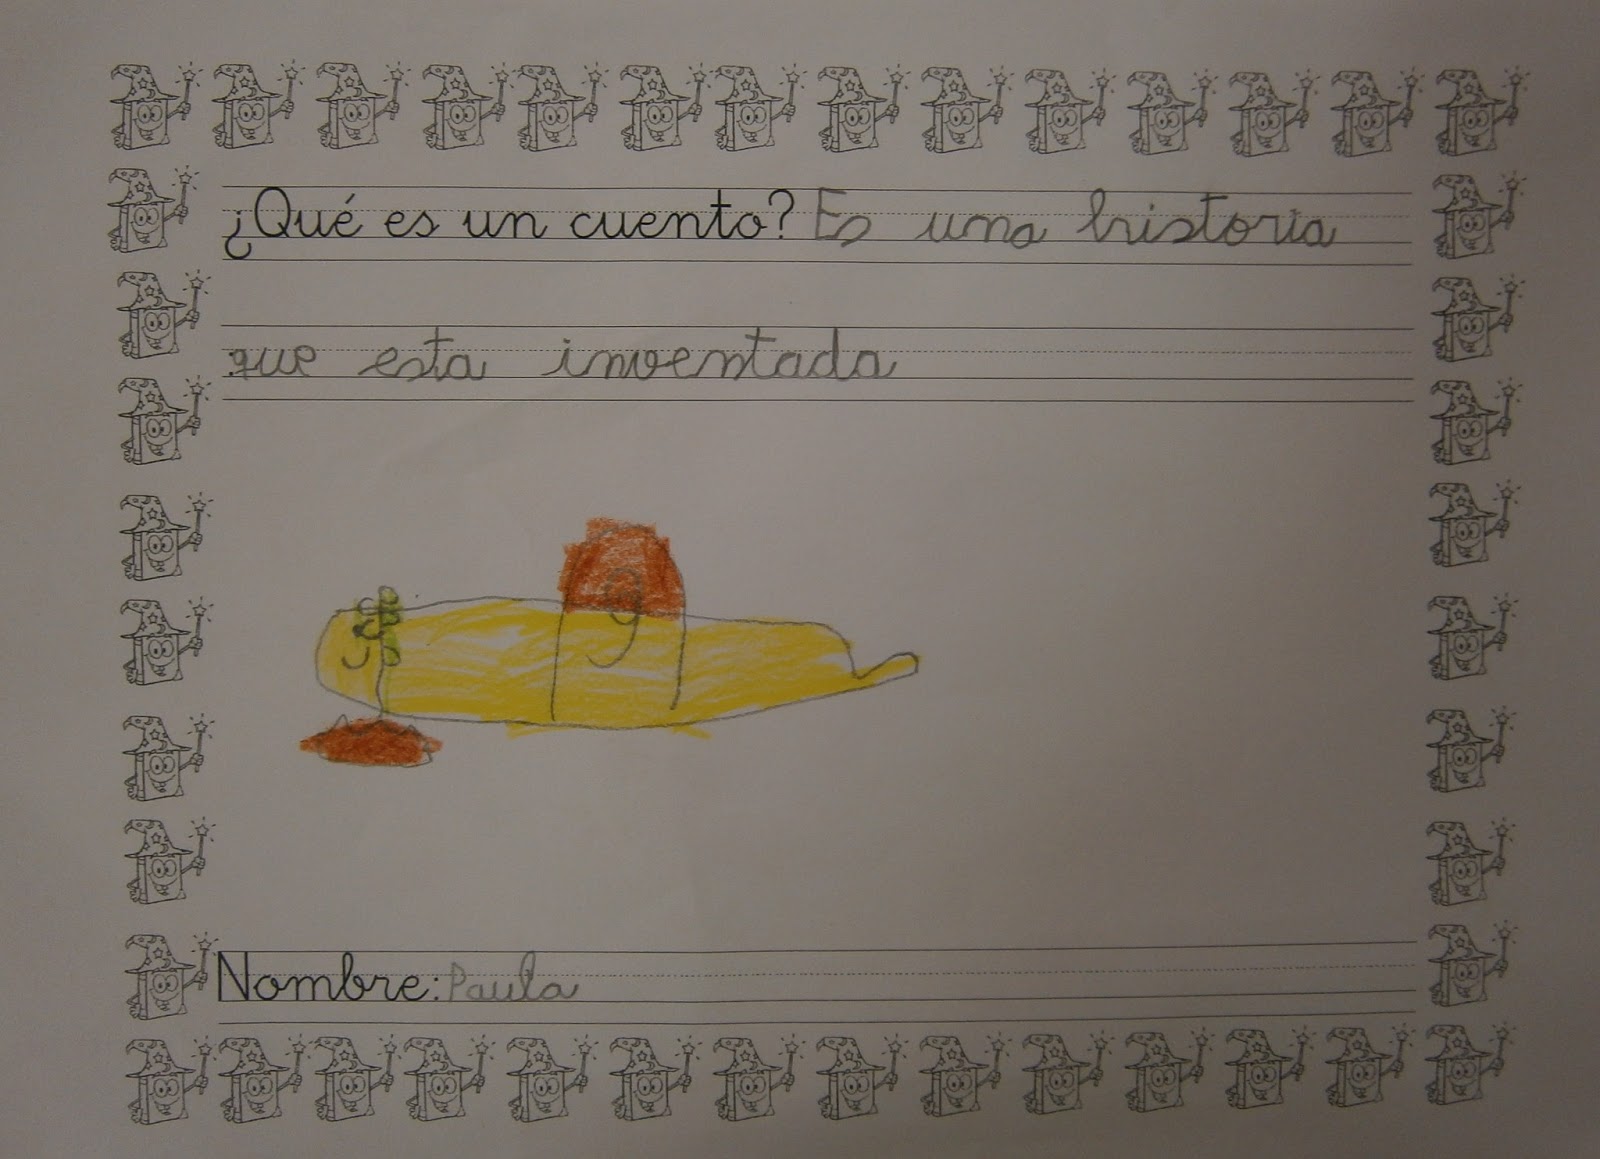 ¿Qué es un cuento? Es una historia
que esta inventada
Nombre: Paula